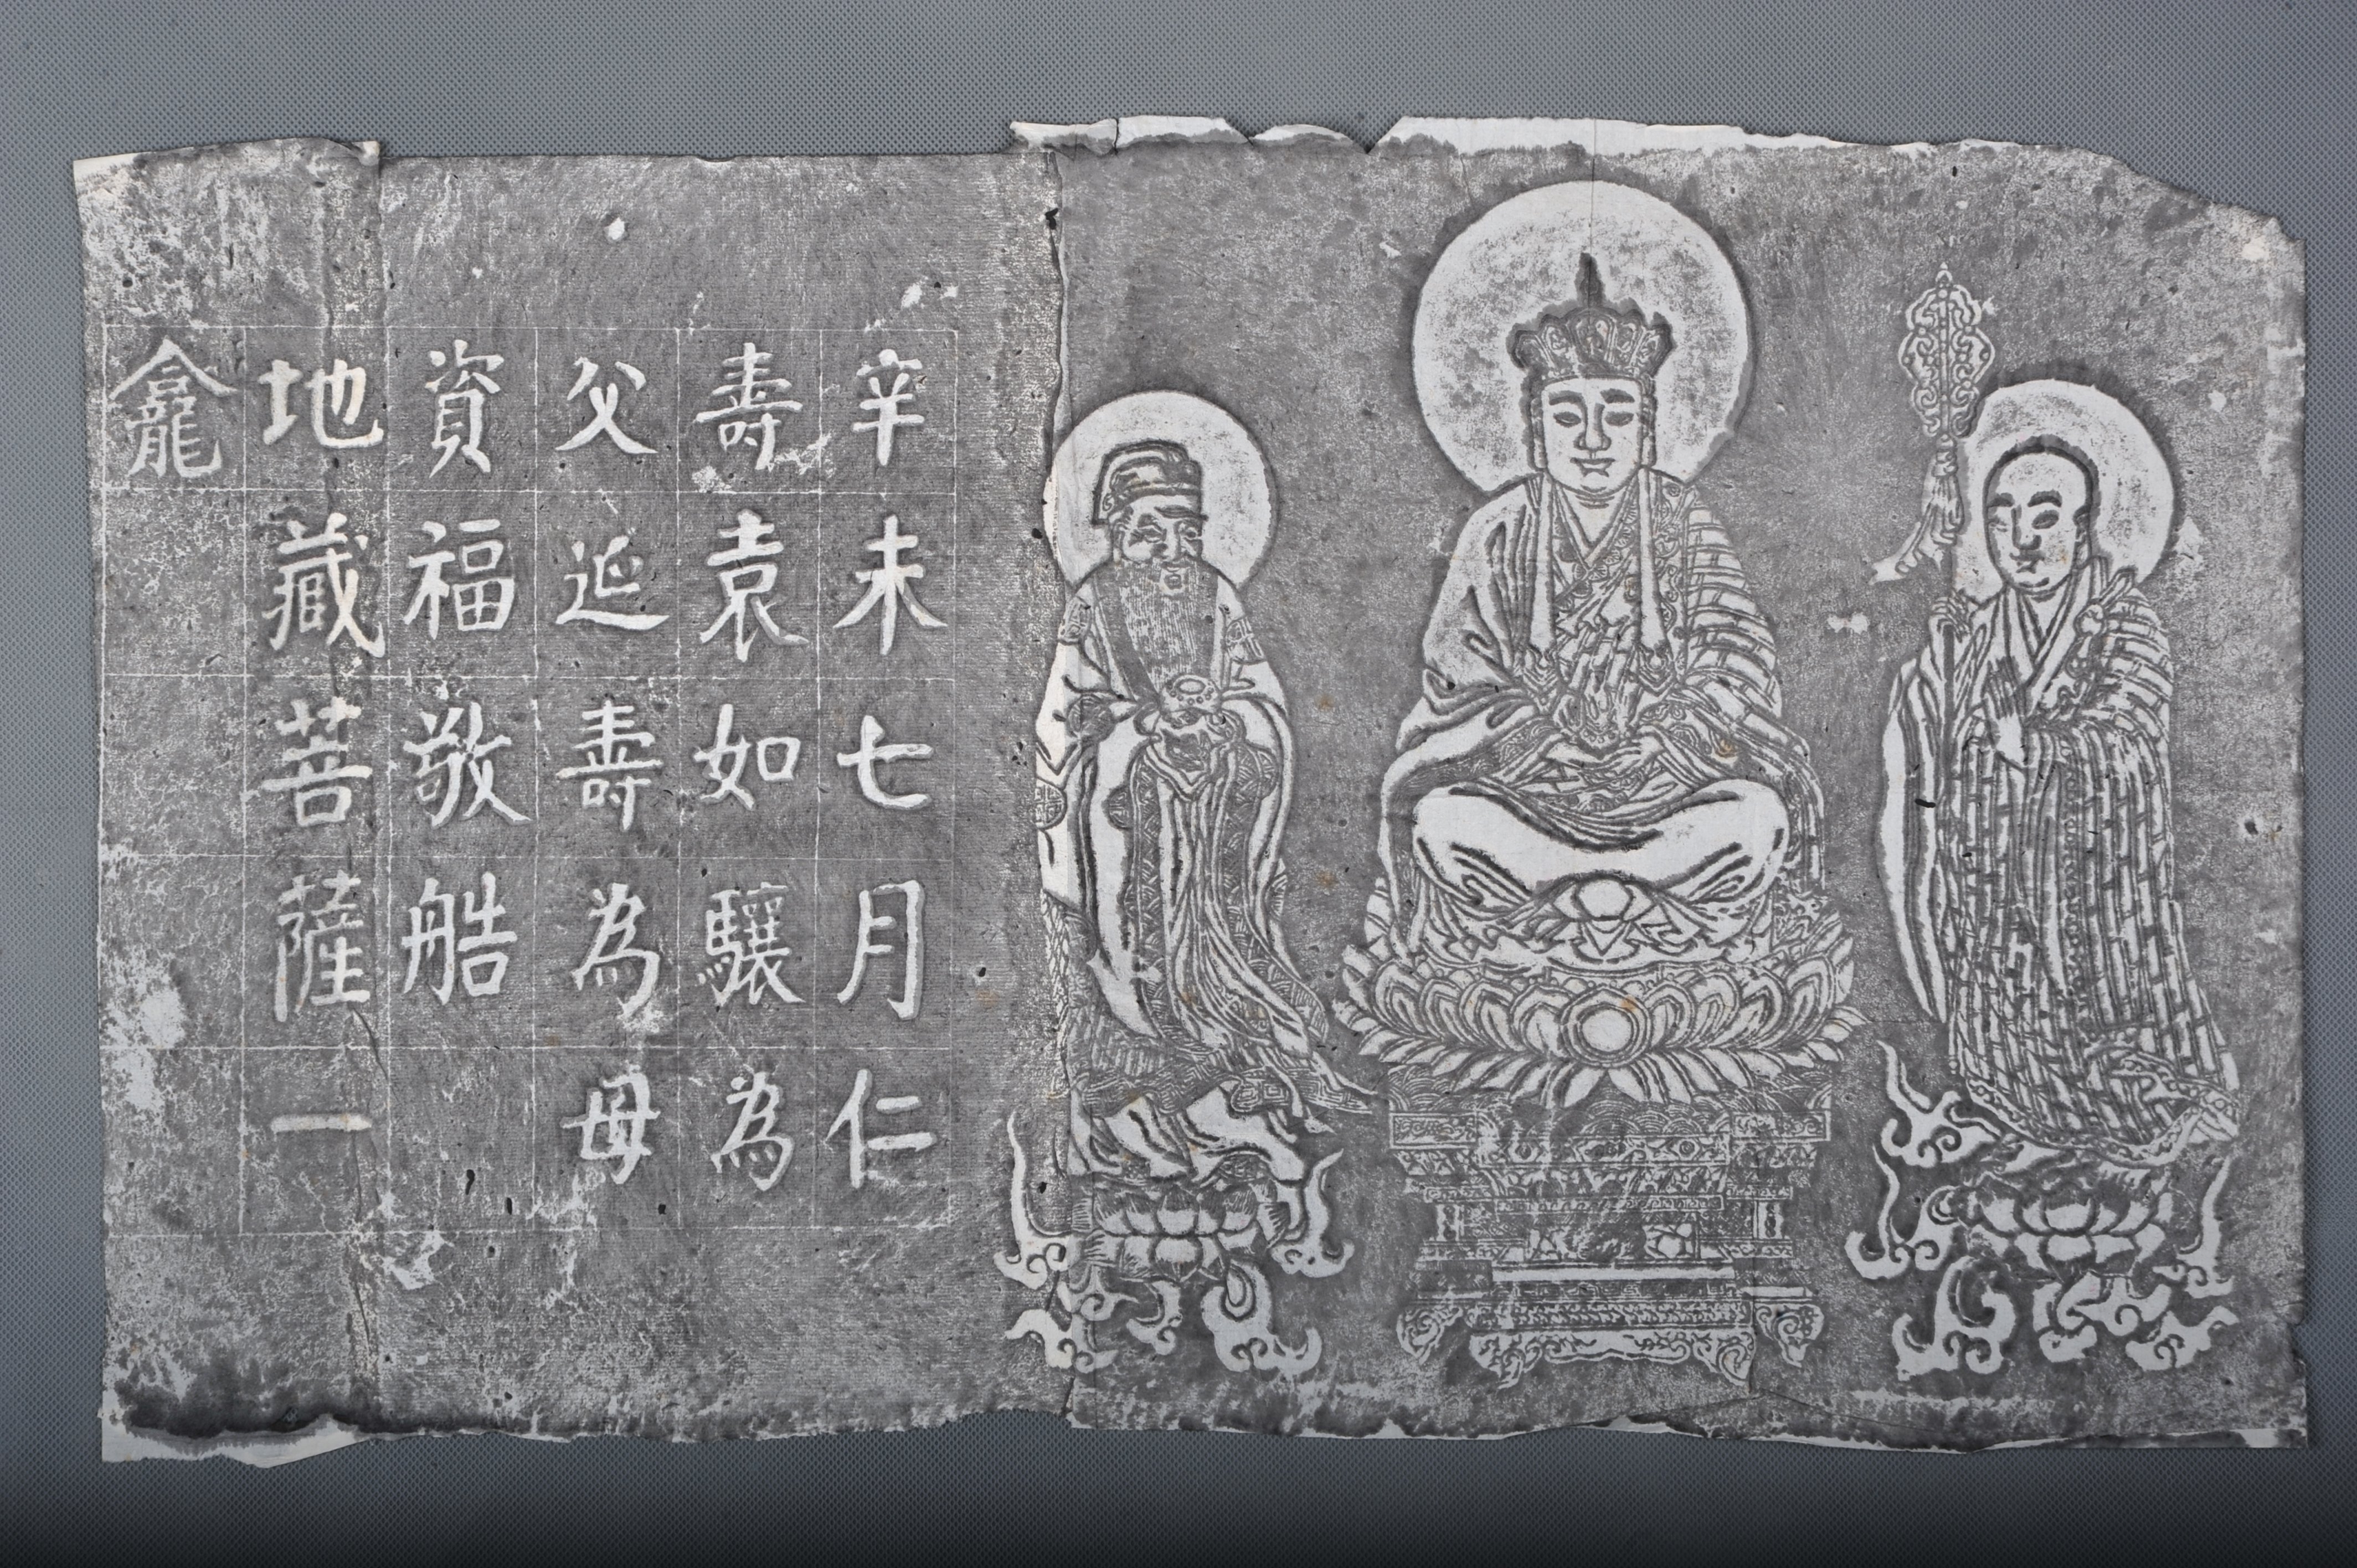 辛未七月仁
壽袁如驤為
父延壽為母
資福敬艁
地藏菩薩一
龕